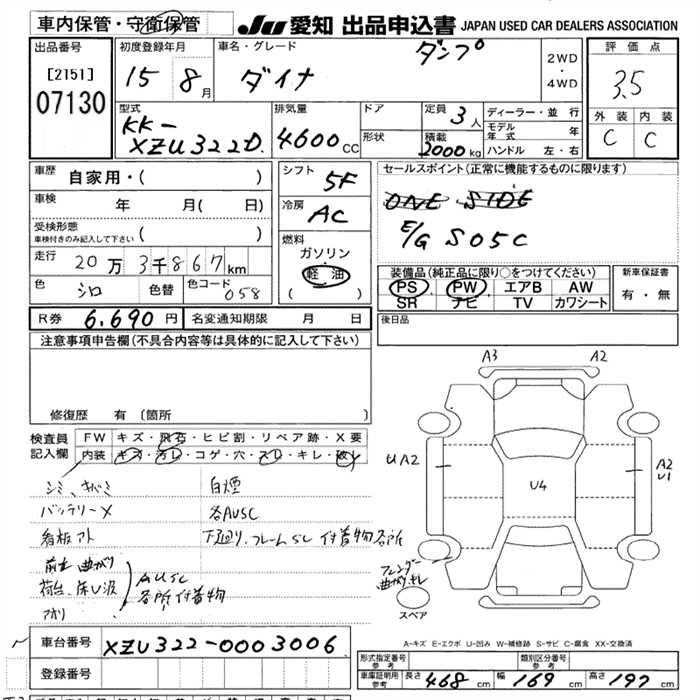 車内保管・守衛保管
JU 愛知 出品申込書 JAPAN USED CAR DEALERS ASSOCIATION
出品番号 [2151] 07130
初度登録年月 15 8月
車名・グレード ダイナ ダンプ
2WD・4WD
評価点 3.5
外装 内装 C C
型式 KK-XZU322D.
排気量 4600cc
ドア
形状
定員 3人
積載 2000kg
ディーラー・並行
モデル年式 年
ハンドル 左・右
車歴 自家用・( )
車検 年 月( 日)
受検形態 ( )
車検付きのみ記入して下さい
走行 20万3千867km
色 シロ 色替 色コード 058
シフト 5F
冷房 AC
燃料 ガソリン 軽油 ( )
セールスポイント(正常に機能するものに限ります)
ONE SIDE
E/G S05C
装備品(純正品に限り○をつけてください)
PS PW エアB AW
SR ナビ TV カワシート
新車保証書 有・無
R券 6.690円 名変通知期限 月 日
後日品
注意事項申告欄(不具合内容等は具体的に記入して下さい)
修復歴 有 [箇所
検査員記入欄
FW キズ・飛石・ヒビ割・リペア跡・X要
内装 キズ・汚レ・コゲ・穴・スレ・キレ・破レ
シミ、キバミ 白煙
バッテリーX 各AUSC
看板アト 下廻り、フレームSC 付着物各所
前 曲がり
荷台、床U波
アオリ
AUSC
各所付着物
A3 A2
UA2
U4
A2
U1
フェンダー
曲がり、キレ
スペア
A-キズ E-エクボ U-凹み W-補修跡 S-サビ C-腐食 XX-交換済
車台番号 XZU322-0003006
登録番号
形式指定番号 参考
類別区分番号 参考
車庫証明用 参考 長さ 468cm 幅 169cm 高さ 197cm